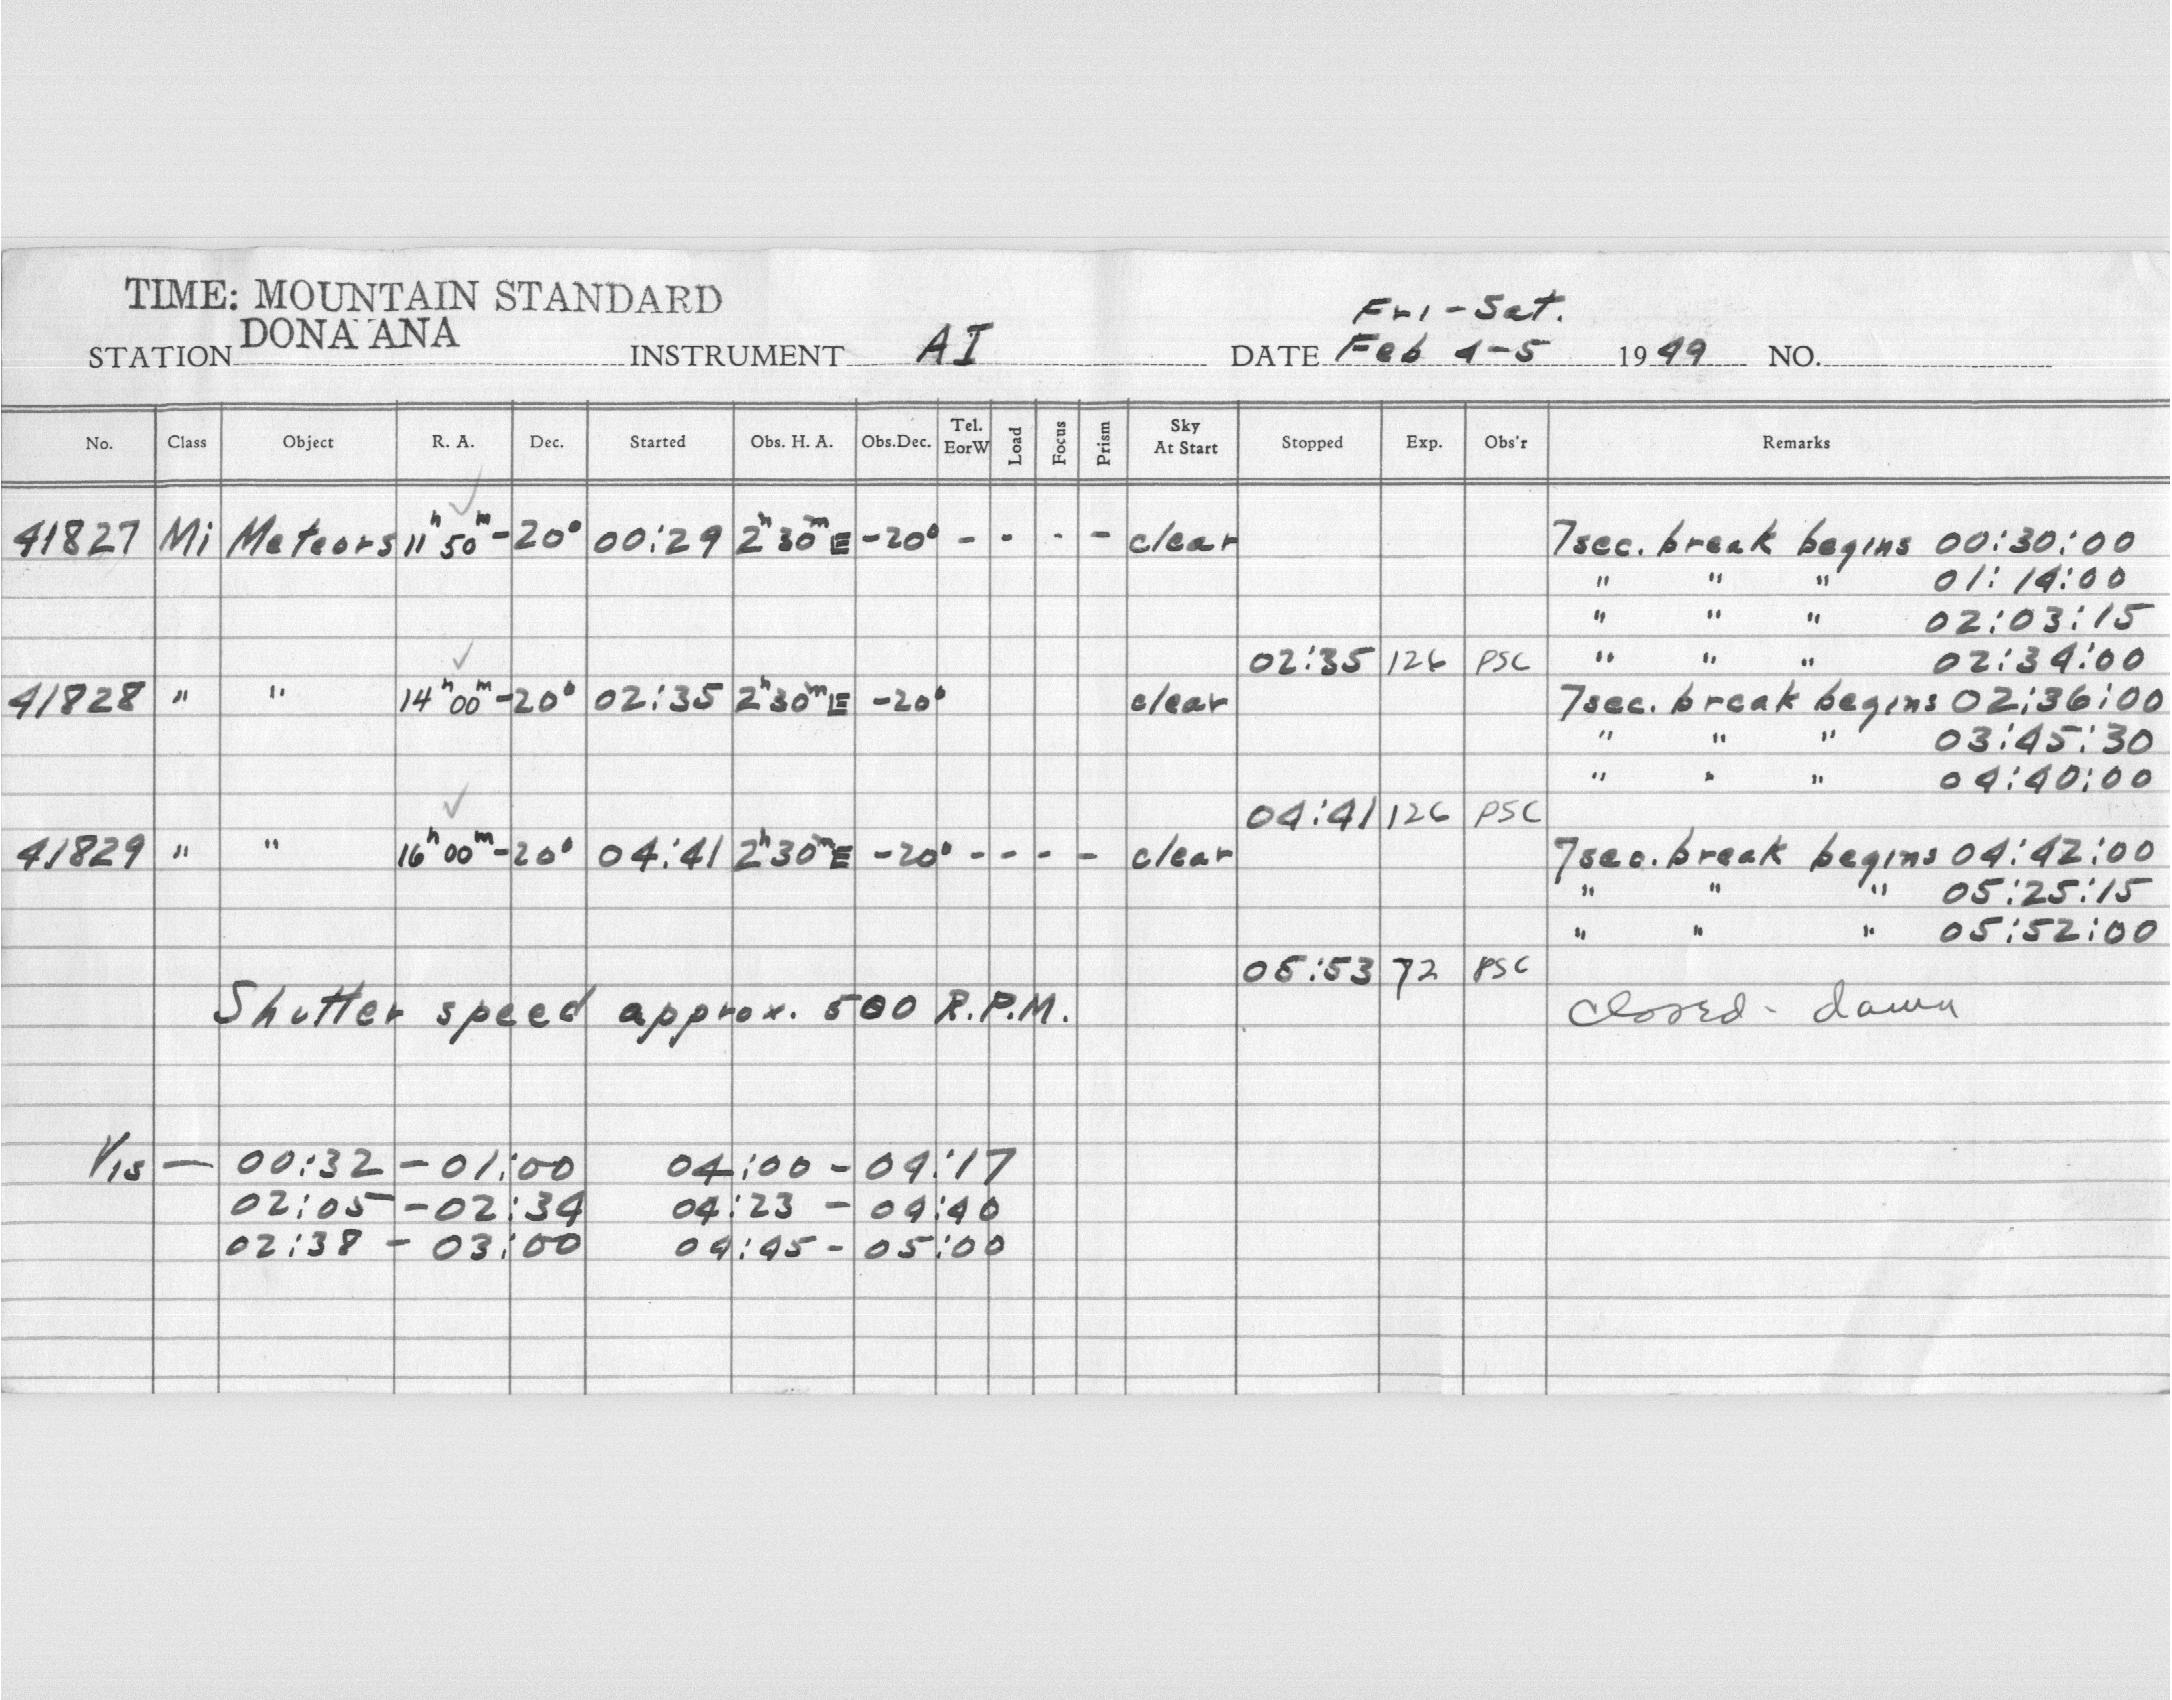 TIME: MOUNTAIN STANDARD
Fri - Sat.
STATION DONA ANA INSTRUMENT AI DATE Feb 4-5 1949 NO.
No. Class Object R. A. Dec. Started Obs. H. A. Obs.Dec. Tel. EorW Load Focus Prism Sky At Start Stopped Exp. Obs'r Remarks
41827 Mi Meteors 11h 50m -20° 00:29 2h30mE -20° - - - - clear 7sec. break begins 00:30:00
" " " 01:14:00
" " " 02:03:15
02:35 126 PSC " " " 02:34:00
41828 " " 14h 00m -20° 02:35 2h30mE -20° clear 7sec. break begins 02:36:00
" " " 03:45:30
" " " 04:40:00
04:41 126 PSC
41829 " " 16h 00m -20° 04:41 2h30mE -20° - - - - clear 7sec. break begins 04:42:00
" " " 05:25:15
" " " 05:52:00
05:53 72 PSC
Shutter speed approx. 500 R.P.M. closed - dawn
Vis — 00:32 - 01:00 04:00 - 04:17
02:05 - 02:34 04:23 - 04:40
02:38 - 03:00 04:45 - 05:00